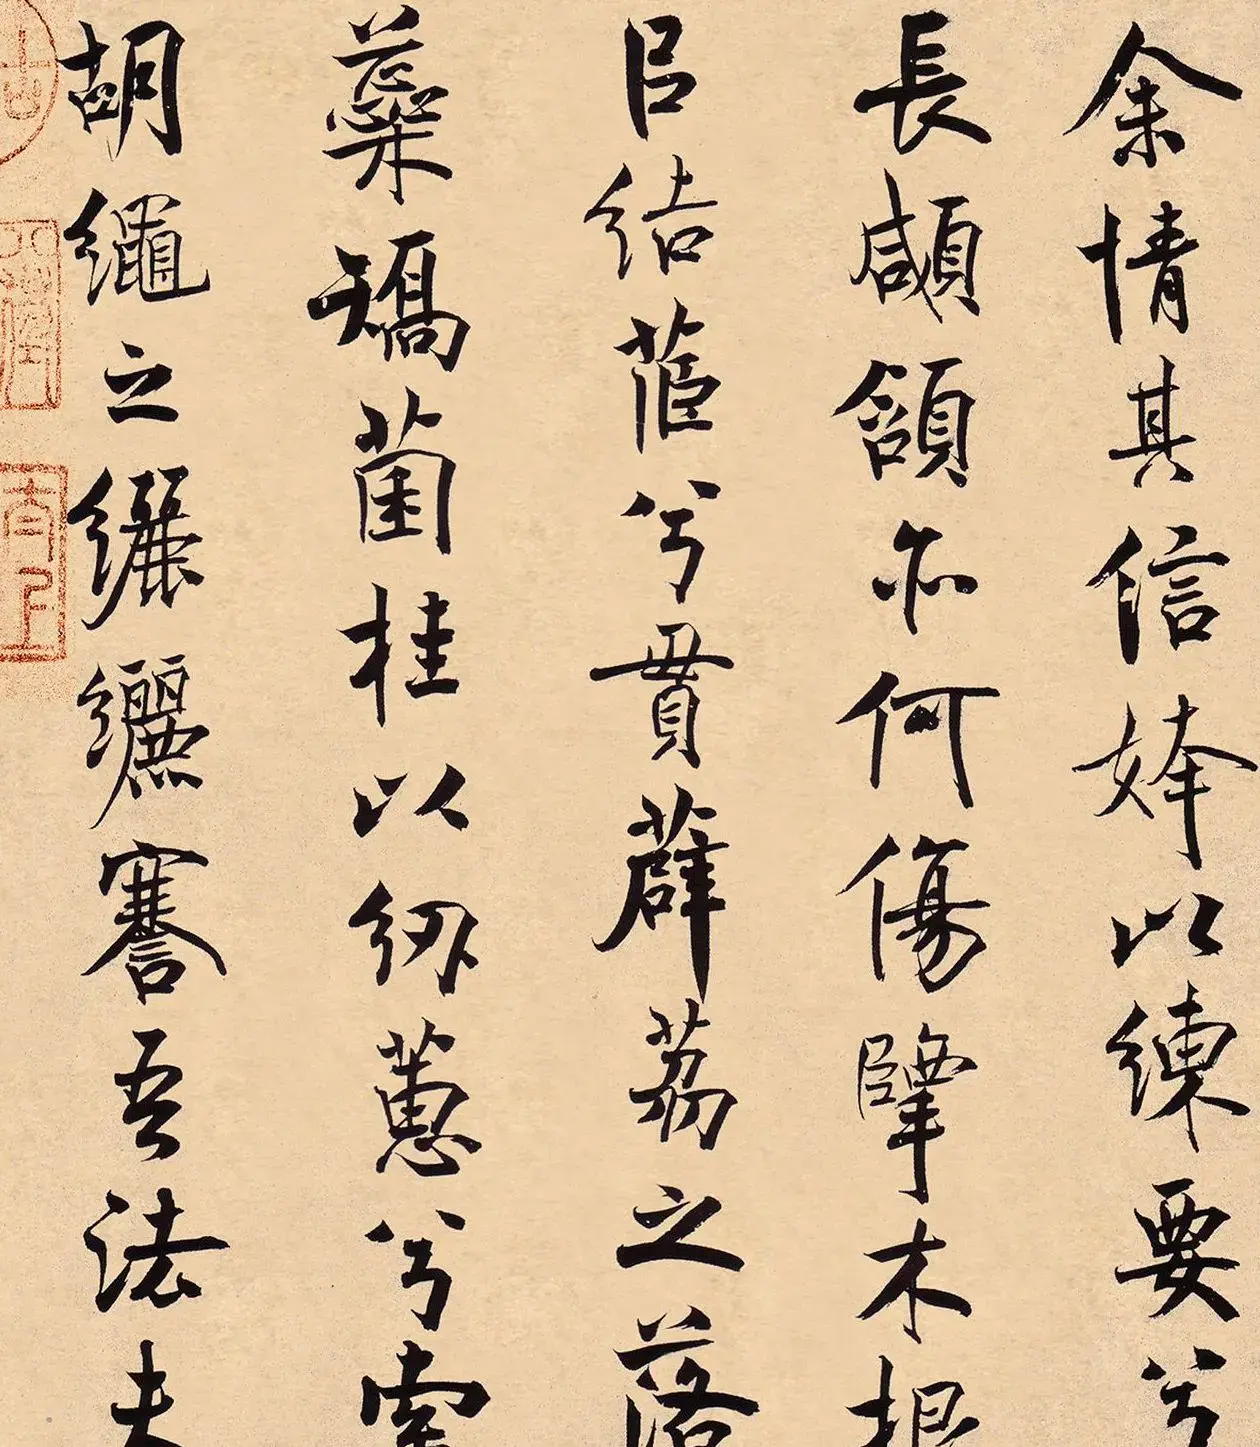 余情其信姱以練要兮
長顑頷亦何傷擥木根
㠯结茝兮貫薜荔之落
蘂矯菌桂以纫蕙兮索
胡繩之纚纚謇吾法夫